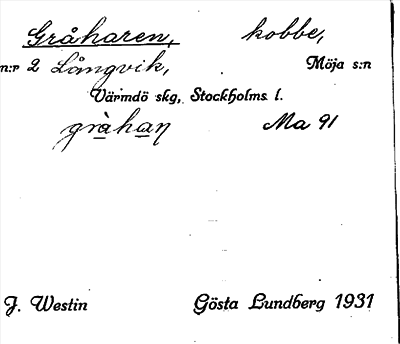 Gråharen, kobbe,
n:r 2 Långvik, Möja s:n
Värmdö skg, Stockholms l.
gràhan Ma 91
J. Westin Gösta Lundberg 1931